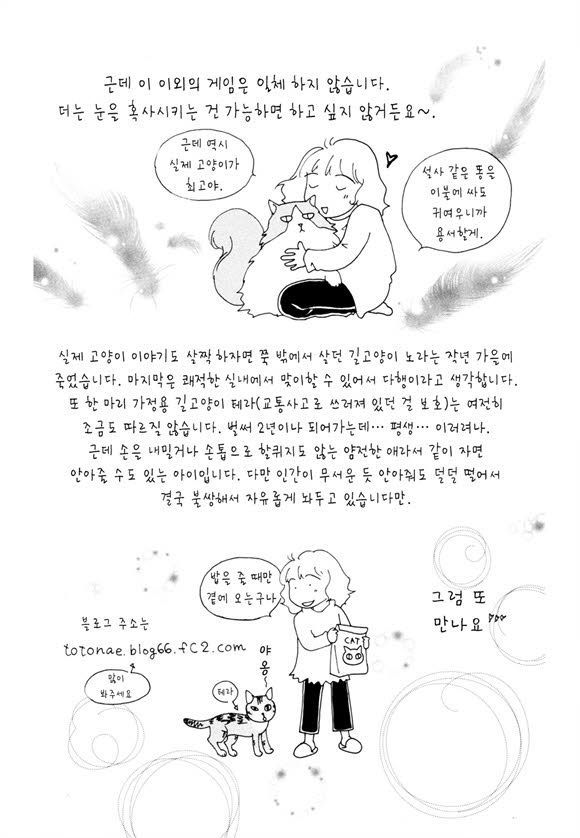 근데 이 이외의 게임은 일체 하지 않습니다.
더는 눈을 혹사시키는 건 가능하면 하고 싶지 않거든요~.
근데 역시
실제 고양이가
최고야.
설사 같은 똥을
이불에 싸도
귀여우니까
용서할게.
실제 고양이 이야기도 살짝 하자면 쭉 밖에서 살던 길고양이 노라는 작년 가을에
죽었습니다. 마지막은 쾌적한 실내에서 맞이할 수 있어서 다행이라고 생각합니다.
또 한 마리 가정용 길고양이 테라(교통사고로 쓰러져 있던 걸 보호)는 여전히
조금도 따르질 않습니다. 벌써 2년이나 되어가는데… 평생… 이러려나.
근데 손을 내밀거나 손톱으로 할퀴지도 않는 얌전한 애라서 같이 자면
안아줄 수도 있는 아이입니다. 다만 인간이 무서운 듯 안아줘도 덜덜 떨어서
결국 불쌍해서 자유롭게 놔두고 있습니다만.
밥을 줄 때만
곁에 오는구나
그럼 또
만나요
블로그 주소는
totonae.blog66.fc2.com
많이
봐주세요
야옹
테라
CAT